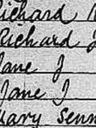 Richard
Richard J
Jane J
Jane I
Mary Senn